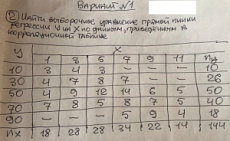 Вариант №1
② Найти выборочное уравнение прямой линии
регрессии Y на X по данным, приведённым в
корреляционной таблице
Y X
1 3 5 7 9 11 ny
10 3 4 3 — — — 10
30 4 7 8 7 — — 26
50 4 9 12 14 6 5 50
70 7 8 5 8 7 5 40
90 — — — 5 9 4 18
nx 18 28 28 34 22 14 144